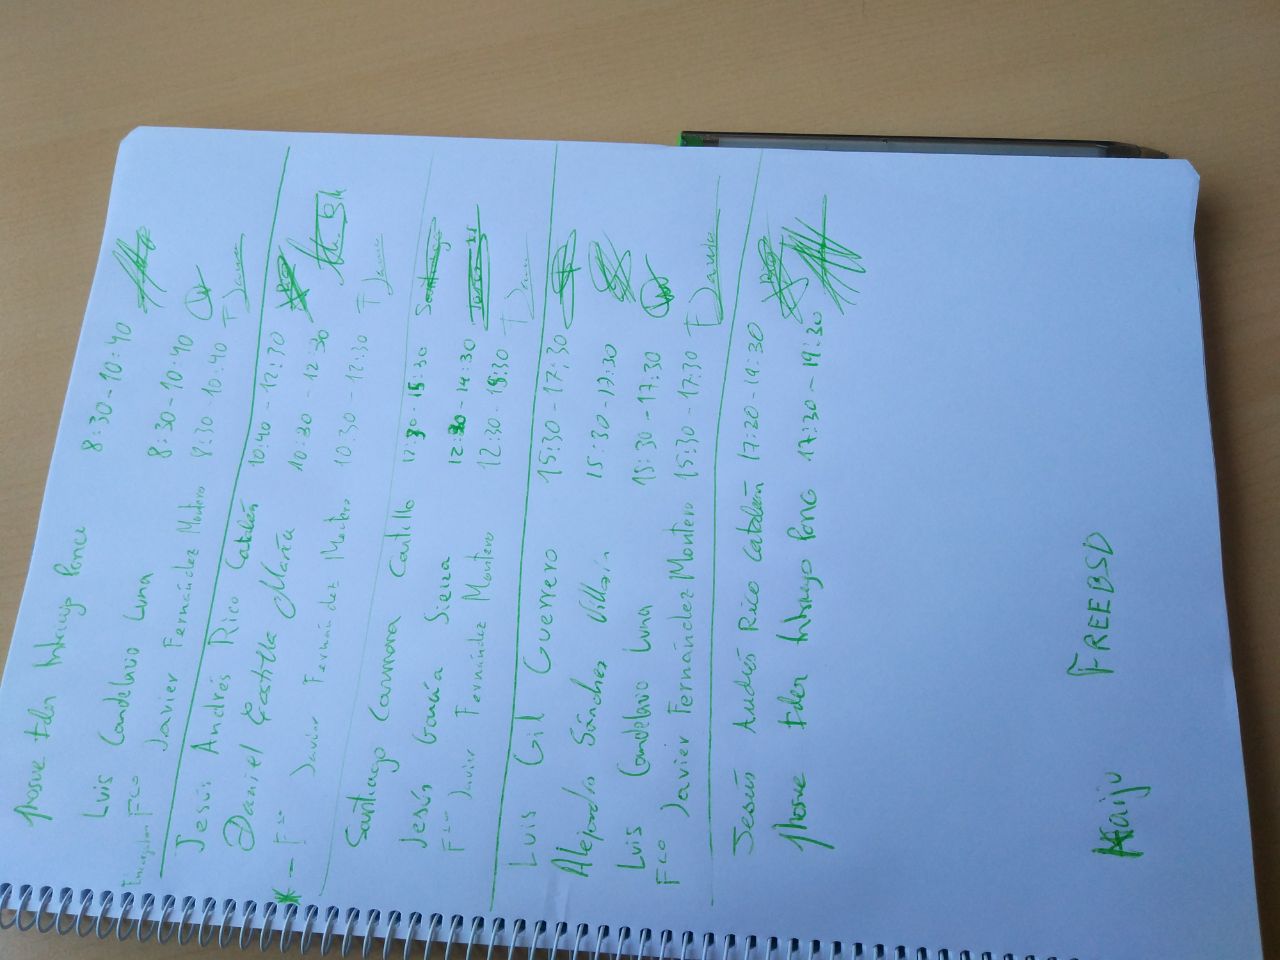 Josue Eder Intriago Ponce 8:30-10:40
Luis Candelario Luna 8:30-10:40
Fco Javier Fernández Montero 8:30-10:40 F Javier
Jesús Andrés Rico Catalán 10:40-12:30
Daniel Castilla María 10:30-12:30
* - Fco Javier Fernández Montero 10:30-12:30 F Javier
Santiago Carmona Castillo 12:30-15:30 Santiago
Jesús García Sierra 12:30-14:30
Fco Javier Fernández Montero 12:30-15:30 F Javier
Luis Gil Guerrero 15:30-17:30
Alejandro Sánchez 15:30-17:30
Luis Candelario Luna 15:30-17:30
Fco Javier Fernández Montero 15:30-17:30 F Javier
Jesús Andrés Rico Catalán 17:20-19:30
Josue Eder Intriago Ponce 17:30-19:30
Naiju FREEBSD